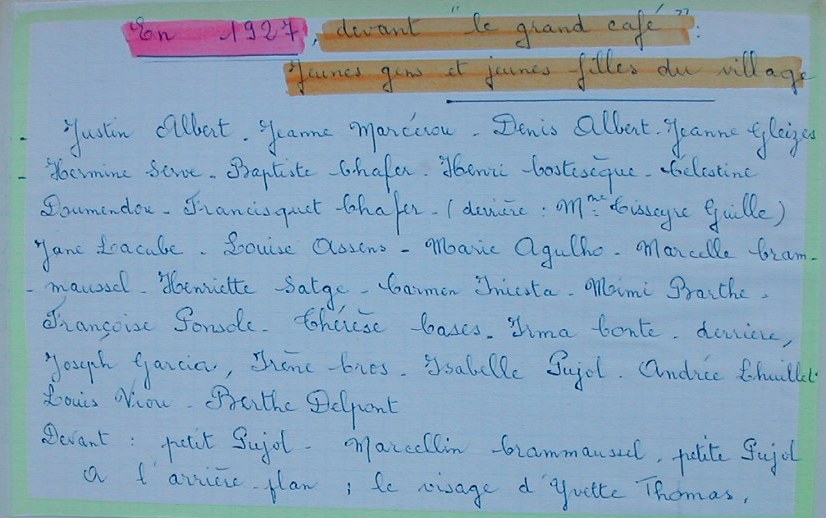 En 1927, devant "le grand café":
Jeunes gens et jeunes filles du village
- Justin Albert - Jeanne Marcérou - Denis Albert - Jeanne Gleizes
- Hermine Serve - Baptiste Chafer - Henri Costesèque - Célestine
Doumendou - Francisquet Chafer - (derrière : Mme Cisseyre Guille)
Jane Lacube - Louise Assens - Marie Agulho - Marcelle Cram-
- maussel - Henriette Satge - Carmen Iniesta - Mimi Barthe -
Françoise Ponsole - Thérèse Cases - Irma Conte - derrière,
Joseph Garcia, Irène Cros - Isabelle Pujol - Andrée Lhuillet -
Louis Viou - Berthe Delpont
Devant : petit Pujol - Marcellin Crammaussel, petite Pujol
A l'arrière-plan ; le visage d'Yvette Thomas,